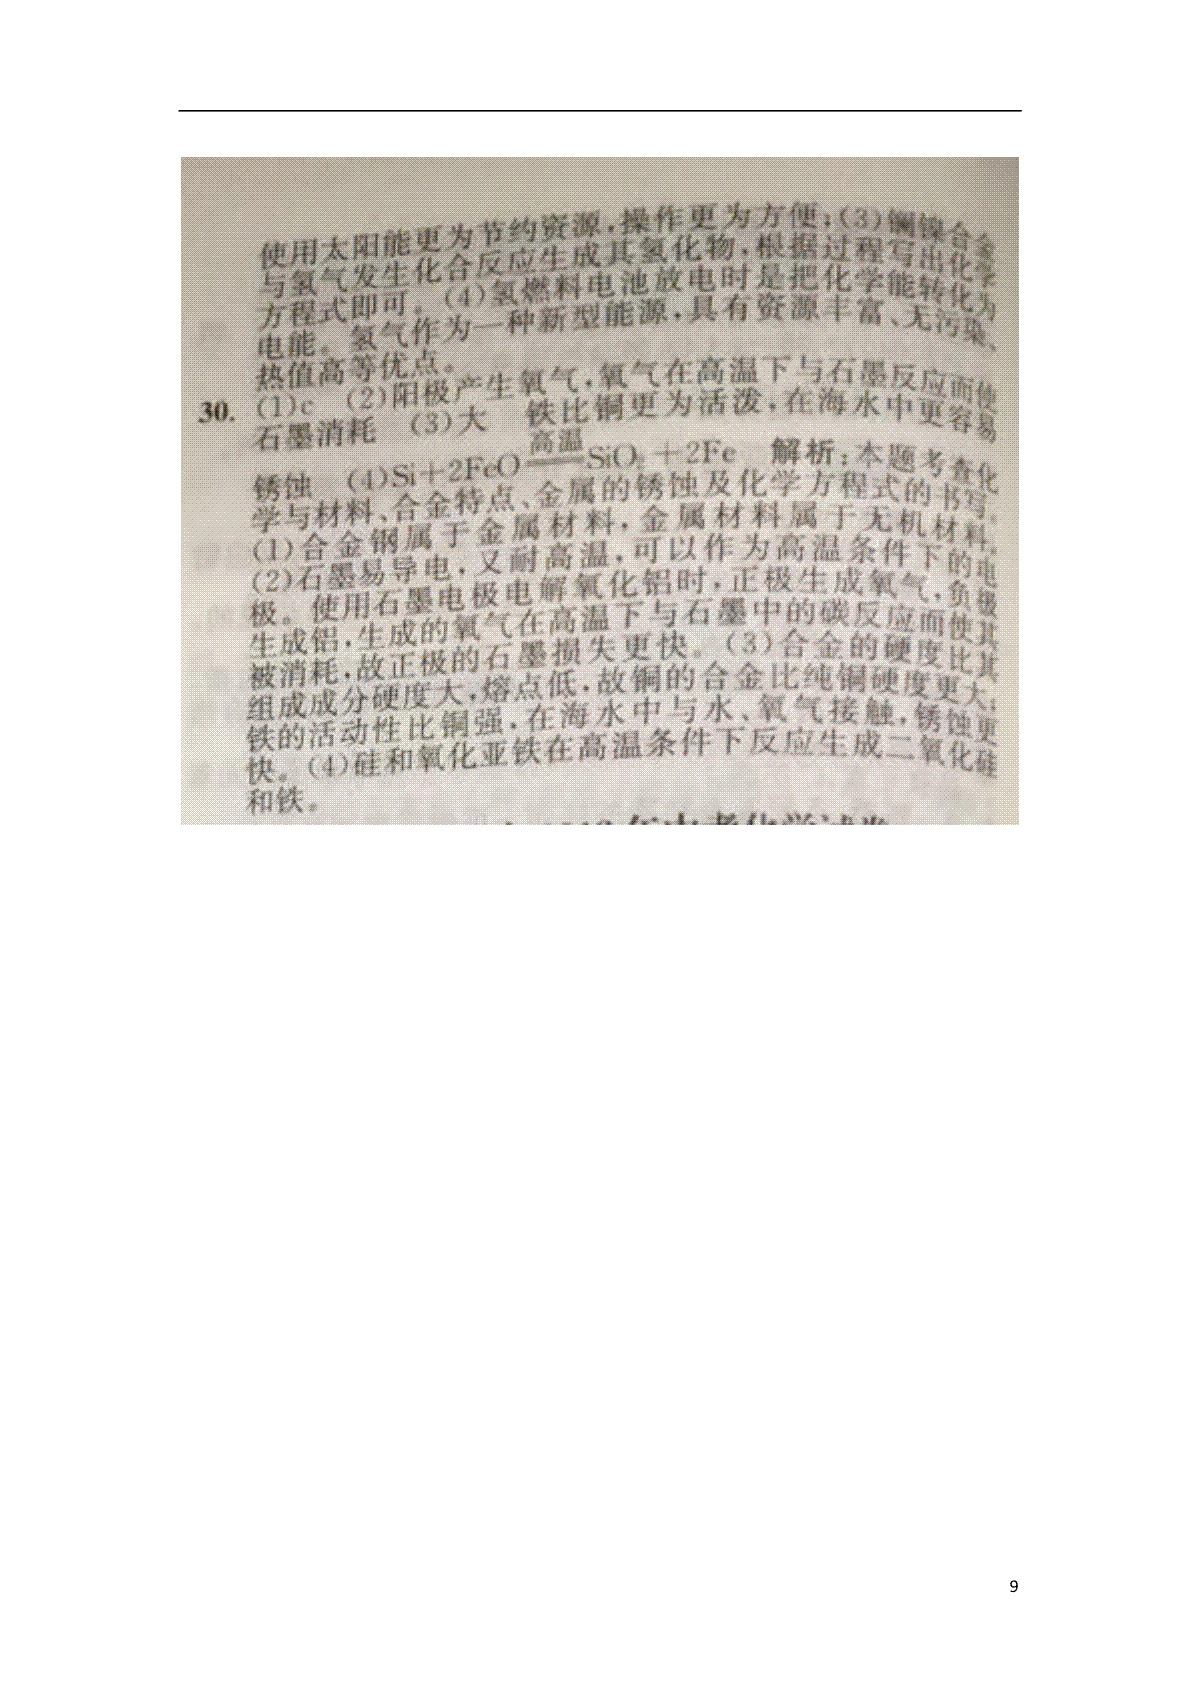 使用太阳能更为节约资源,操作更为方便;(3)镧镍合金
与氢气发生化合反应生成其氢化物,根据过程写出化学
方程式即可。(4)氢燃料电池放电时是把化学能转化为
电能。氢气作为一种新型能源,具有资源丰富、无污染、
热值高等优点。
30. (1)c (2)阳极产生氧气,氧气在高温下与石墨反应而使
石墨消耗 (3)大 铁比铜更为活泼,在海水中更容易
锈蚀 (4)Si+2FeO 高温 SiO₂+2Fe 解析:本题考查化
学与材料、合金特点、金属的锈蚀及化学方程式的书写。
(1)合金钢属于金属材料,金属材料属于无机材料。
(2)石墨易导电,又耐高温,可以作为高温条件下的电
极。使用石墨电极电解氧化铝时,正极生成氧气,负极
生成铝,生成的氧气在高温下与石墨中的碳反应而使其
被消耗,故正极的石墨损失更快。(3)合金的硬度比其
组成成分硬度大,熔点低,故铜的合金比纯铜硬度更大;
铁的活动性比铜强,在海水中与水、氧气接触,锈蚀更
快。(4)硅和氧化亚铁在高温条件下反应生成二氧化硅
和铁。
年中考化学试卷
9